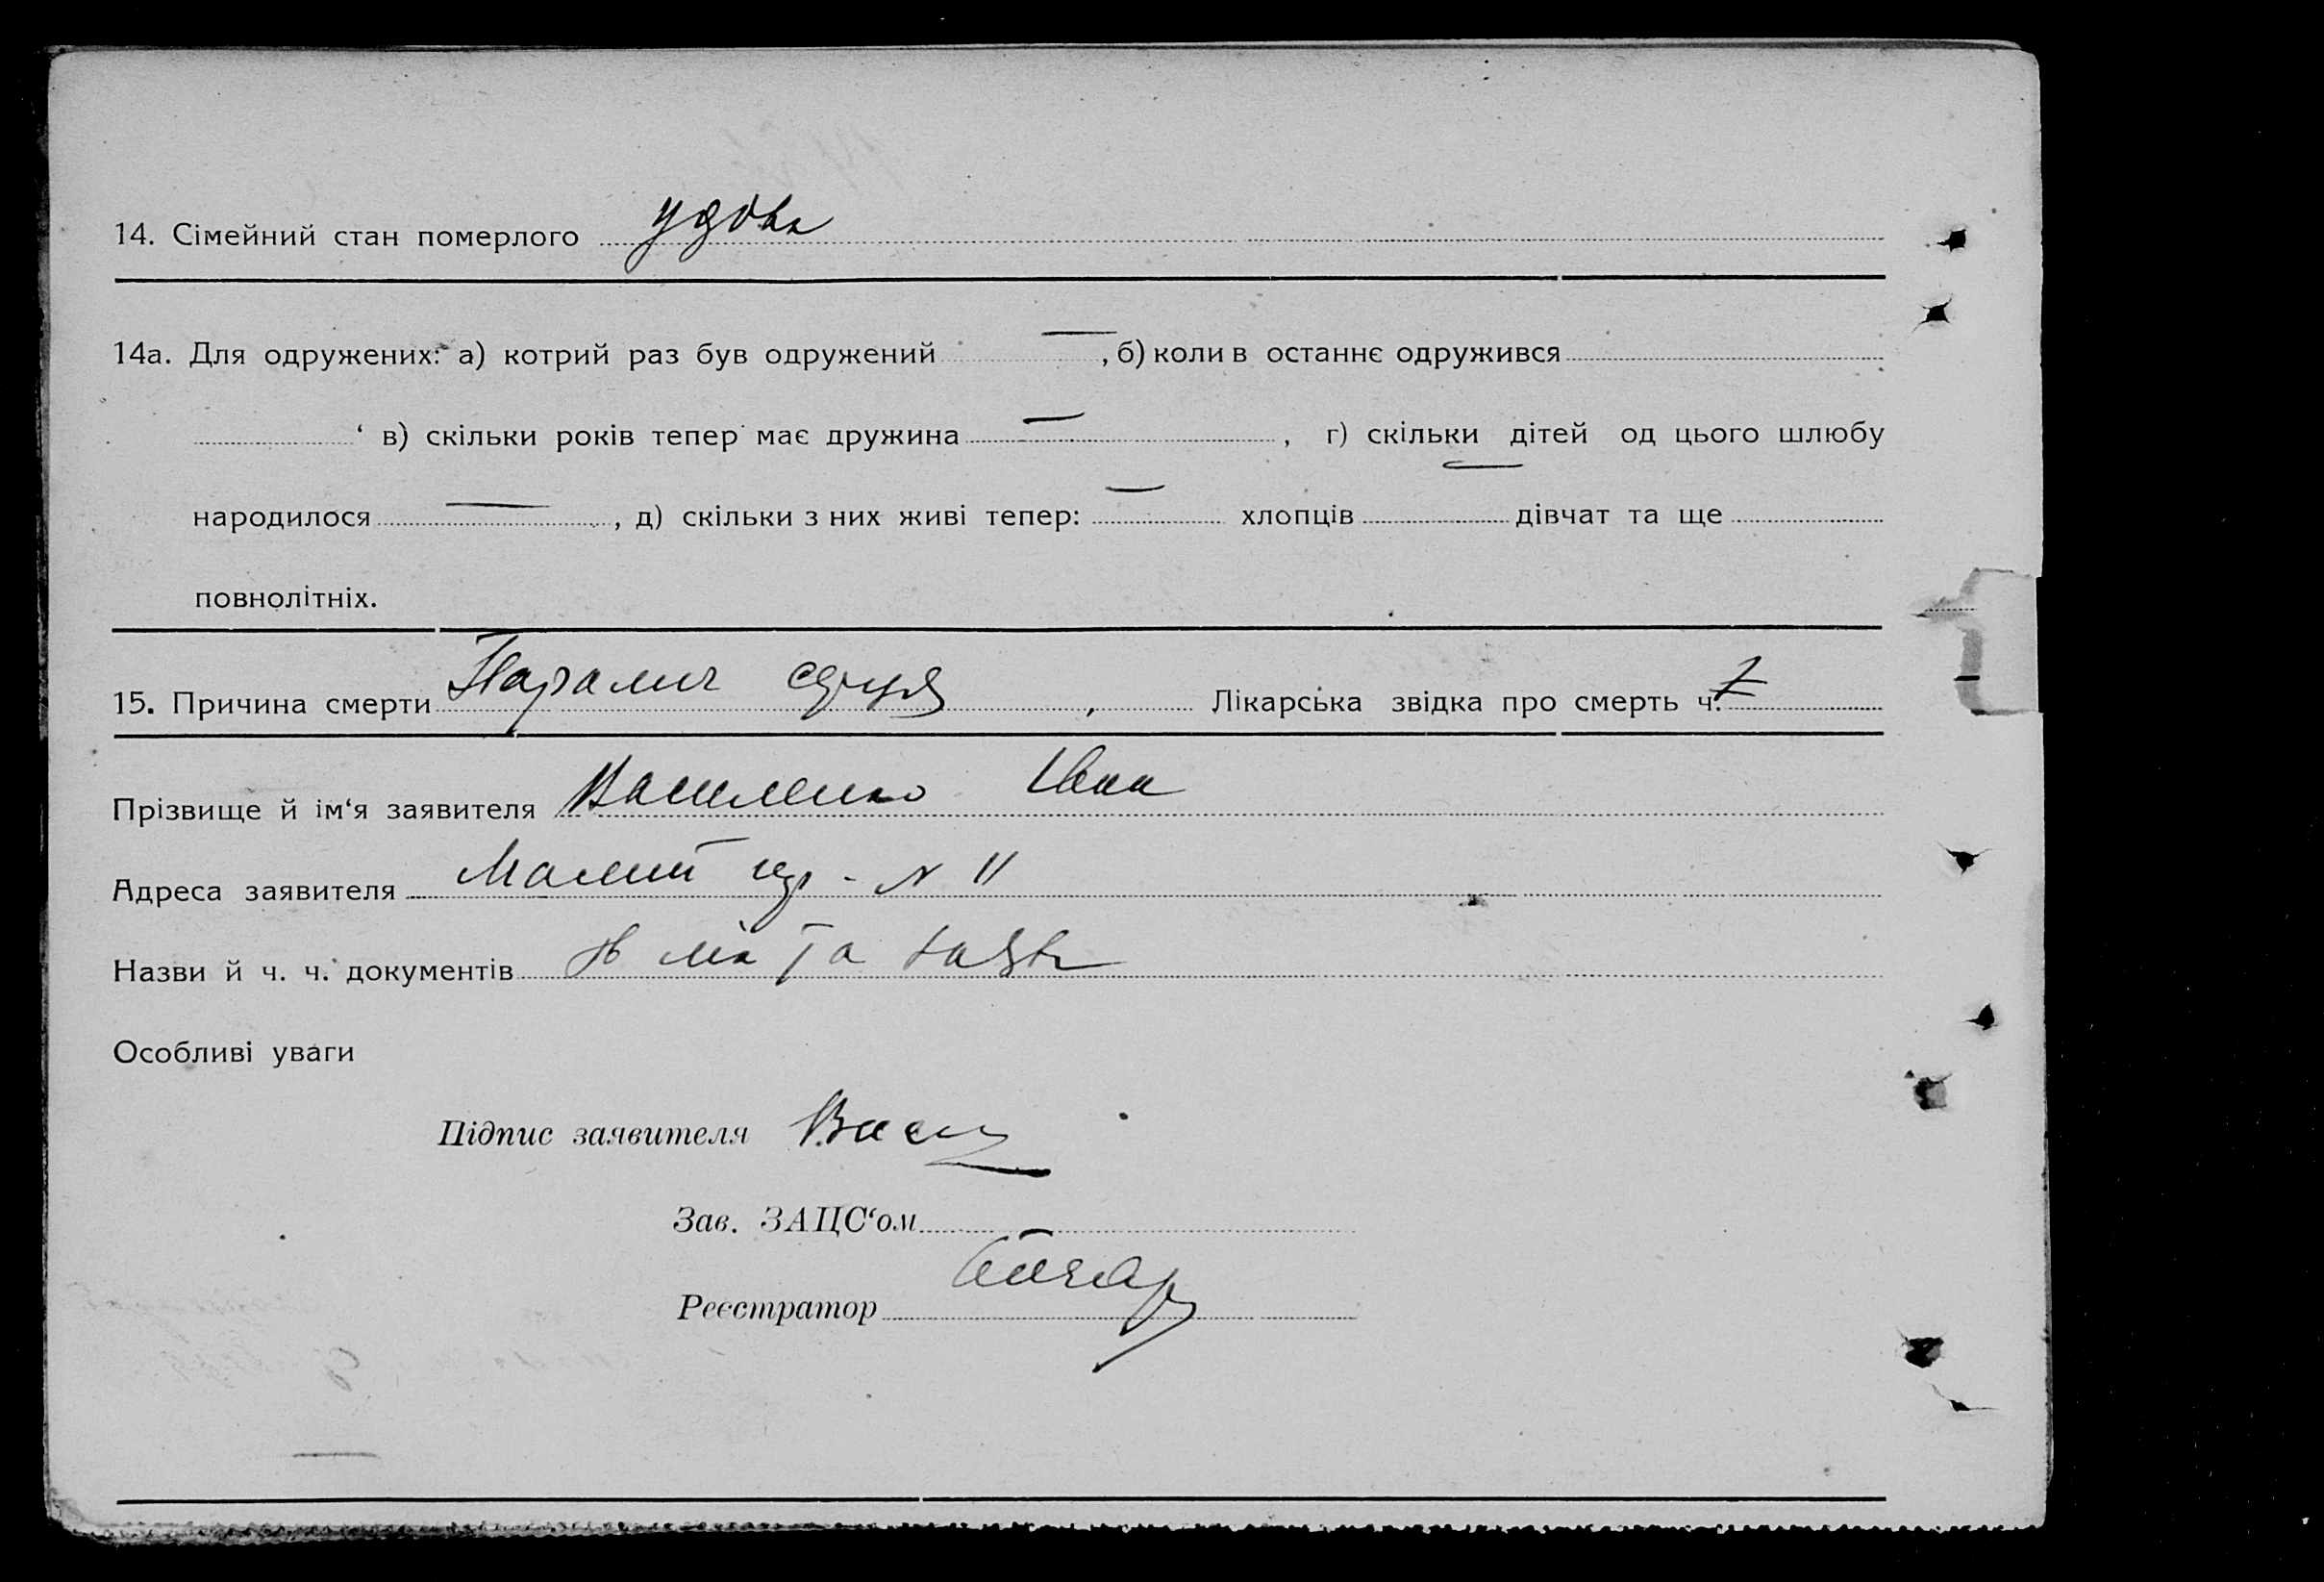 14. Сімейний стан померлого удова
14а. Для одружених: а) котрий раз був одружений —, б) коли в останнє одружився
в) скільки років тепер має дружина —, г) скільки дітей од цього шлюбу
народилося —, д) скільки з них живі тепер: — хлопців — дівчат та ще
повнолітніх.
15. Причина смерти Параліч серця, Лікарська звідка про смерть ч.
Прізвище й ім‘я заявителя Василенко Іван
Адреса заявителя Малий № 11
Назви й ч. ч. документів та
Особливі уваги
Підпис заявителя
Зав. ЗАЦС‘ом
Реєстратор